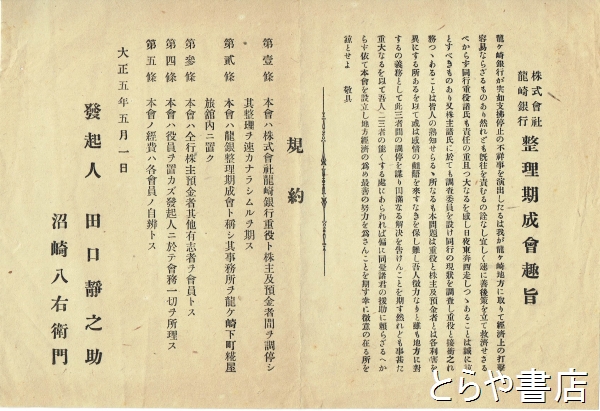 株式會社
龍崎銀行
整理期成會趣旨
龍ケ崎銀行が突如支拂停止の不祥事を演出したるは我が龍ケ崎地方に取りて經濟上の打擊
容易ならざるものあり然れども既往を責むるの詮なし宜しく速に善後策を立て救濟せざる
べからず同行重役諸氏も責任の重且つ大なるを感じ日夜東奔西走しつゝあることは誠に諒
とすべきものあり又株主諸氏に於ても調査委員を設け同行の現狀を調査し重役と接衝之れ
務つゝあることは皆人の熟知せらるゝ所なるも本問題は重役と株主及預金者とは各利害を
異にする所あるを以て或は感情の齟齬を來すなきを保し難し吾人微力なりと雖も地方に對
するの義務として此三者間の調停を謀り圓滿なる解決を告げんことを期す然れども事甚だ
重大なるを以て吾人二三者の能くする處にあらざれば偏に同憂諸君の援助に賴らざるべか
らず依て本會を設立し地方經濟の爲め最善の努力を爲さんことを期す幸に微意の在る所を
諒とせよ 敬具
規約
第壹條 本會ハ株式會社龍崎銀行重役ト株主及預金者間ヲ調停シ
其整理ヲ速カナラシムルヲ期ス
第貳條 本會ハ龍銀整理期成會ト稱シ其事務所ヲ龍ケ崎下町糀屋
旅舘內ニ置ク
第參條 本會ハ仝行株主預金者其他有志者ヲ會員トス
第四條 本會ハ役員ヲ置カズ發起人ニ於テ會務一切ヲ所理ス
第五條 本會ノ經費ハ各會員ノ自辨トス
大正五年五月一日
發起人 田口靜之助
沼崎八右衛門
とらや書店